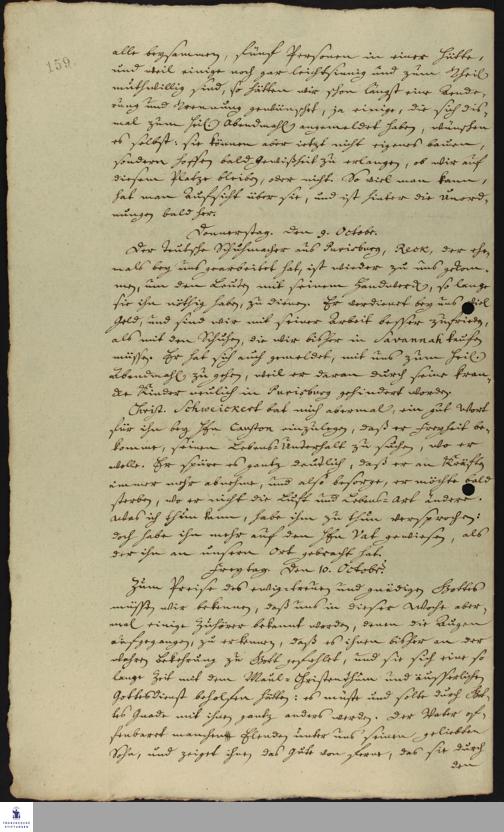 159.
alle beysammen, fünf Personen in einer Hütte,
und weil einige noch gar leichtsinnig und zum Theil
muthwillig sind, so hätten wir schon längst eine Aende-
rung und Trennung gewünschet, ja einige, die sich dis-
mal zum Heil. Abendmahl angemeldet haben, wünschen
es selbst: sie können aber ietzt nicht eigenes bauen,
sondern hoffen bald Gewißheit zu erlangen, ob wir auf
diesem Platze bleiben, oder nicht. So viel man kann,
hat man Aufsicht über sie, und ist hinter die Unord-
nungen bald her.
Donnerstag. den 9. Octobr.
Der teutsche Schuhmacher aus Purisburg, Reck, der ehe-
mals bey uns gearbeitet hat, ist wieder zu uns gekom-
men, um den Leuten mit seinem Handwerck, so lange
sie ihn nöthig haben, zu dienen. Er verdienet bey uns viel
Geld, und sind wir mit seiner Arbeit besser zufrieden,
als mit den Schuhen, die wir bisher in Savannah kaufen
müssen. Er hat sich auch gemeldet, mit uns zum Heil.
Abendmahl zu gehen, weil er daran durch seine kran-
cke Kinder neulich in Purisburg gehindert worden.
Christ. Schweickert bat mich abermal, ein gut Wort
für ihn bey Hn Causton einzulegen, daß er Freyheit be-
komme, seinen Lebens-Unterhalt zu suchen, wo er
wolle. Er spüre es gantz deutlich, daß er an Kräften
immer mehr abnehme, und also besorge, er möchte bald
sterben, wo er nicht die Luft und Lebens-Art ändere.
Was ich thun kann, habe ihm zu thun versprochen:
doch habe ihn mehr auf den Hn Vat gewiesen, als
der ihn an unsern Ort gebracht hat.
Freytag. Den 10. Octobr.
Zum Preise des ewigtreuen und gnädigen Gottes
müssen wir bekennen, daß uns in dieser Woche aber-
mal einige Zuhörer bekannt worden, denen die Augen
aufgegangen, zu erkennen, daß es ihnen bisher an der
wahren Bekehrung zu Gott gefehlet, und sie sich eine so
lange Zeit mit dem Maul-Christenthum und äusserlichen
Gottesdienst beholfen hätten: es müste und solte durch Got-
tes Gnade mit ihnen gantz anders werden. Der Vater of-
fenbaret manchen Elenden unter uns seinen geliebten
Sohn, und zeiget ihnen das Gute von ferne, das sie durch
den